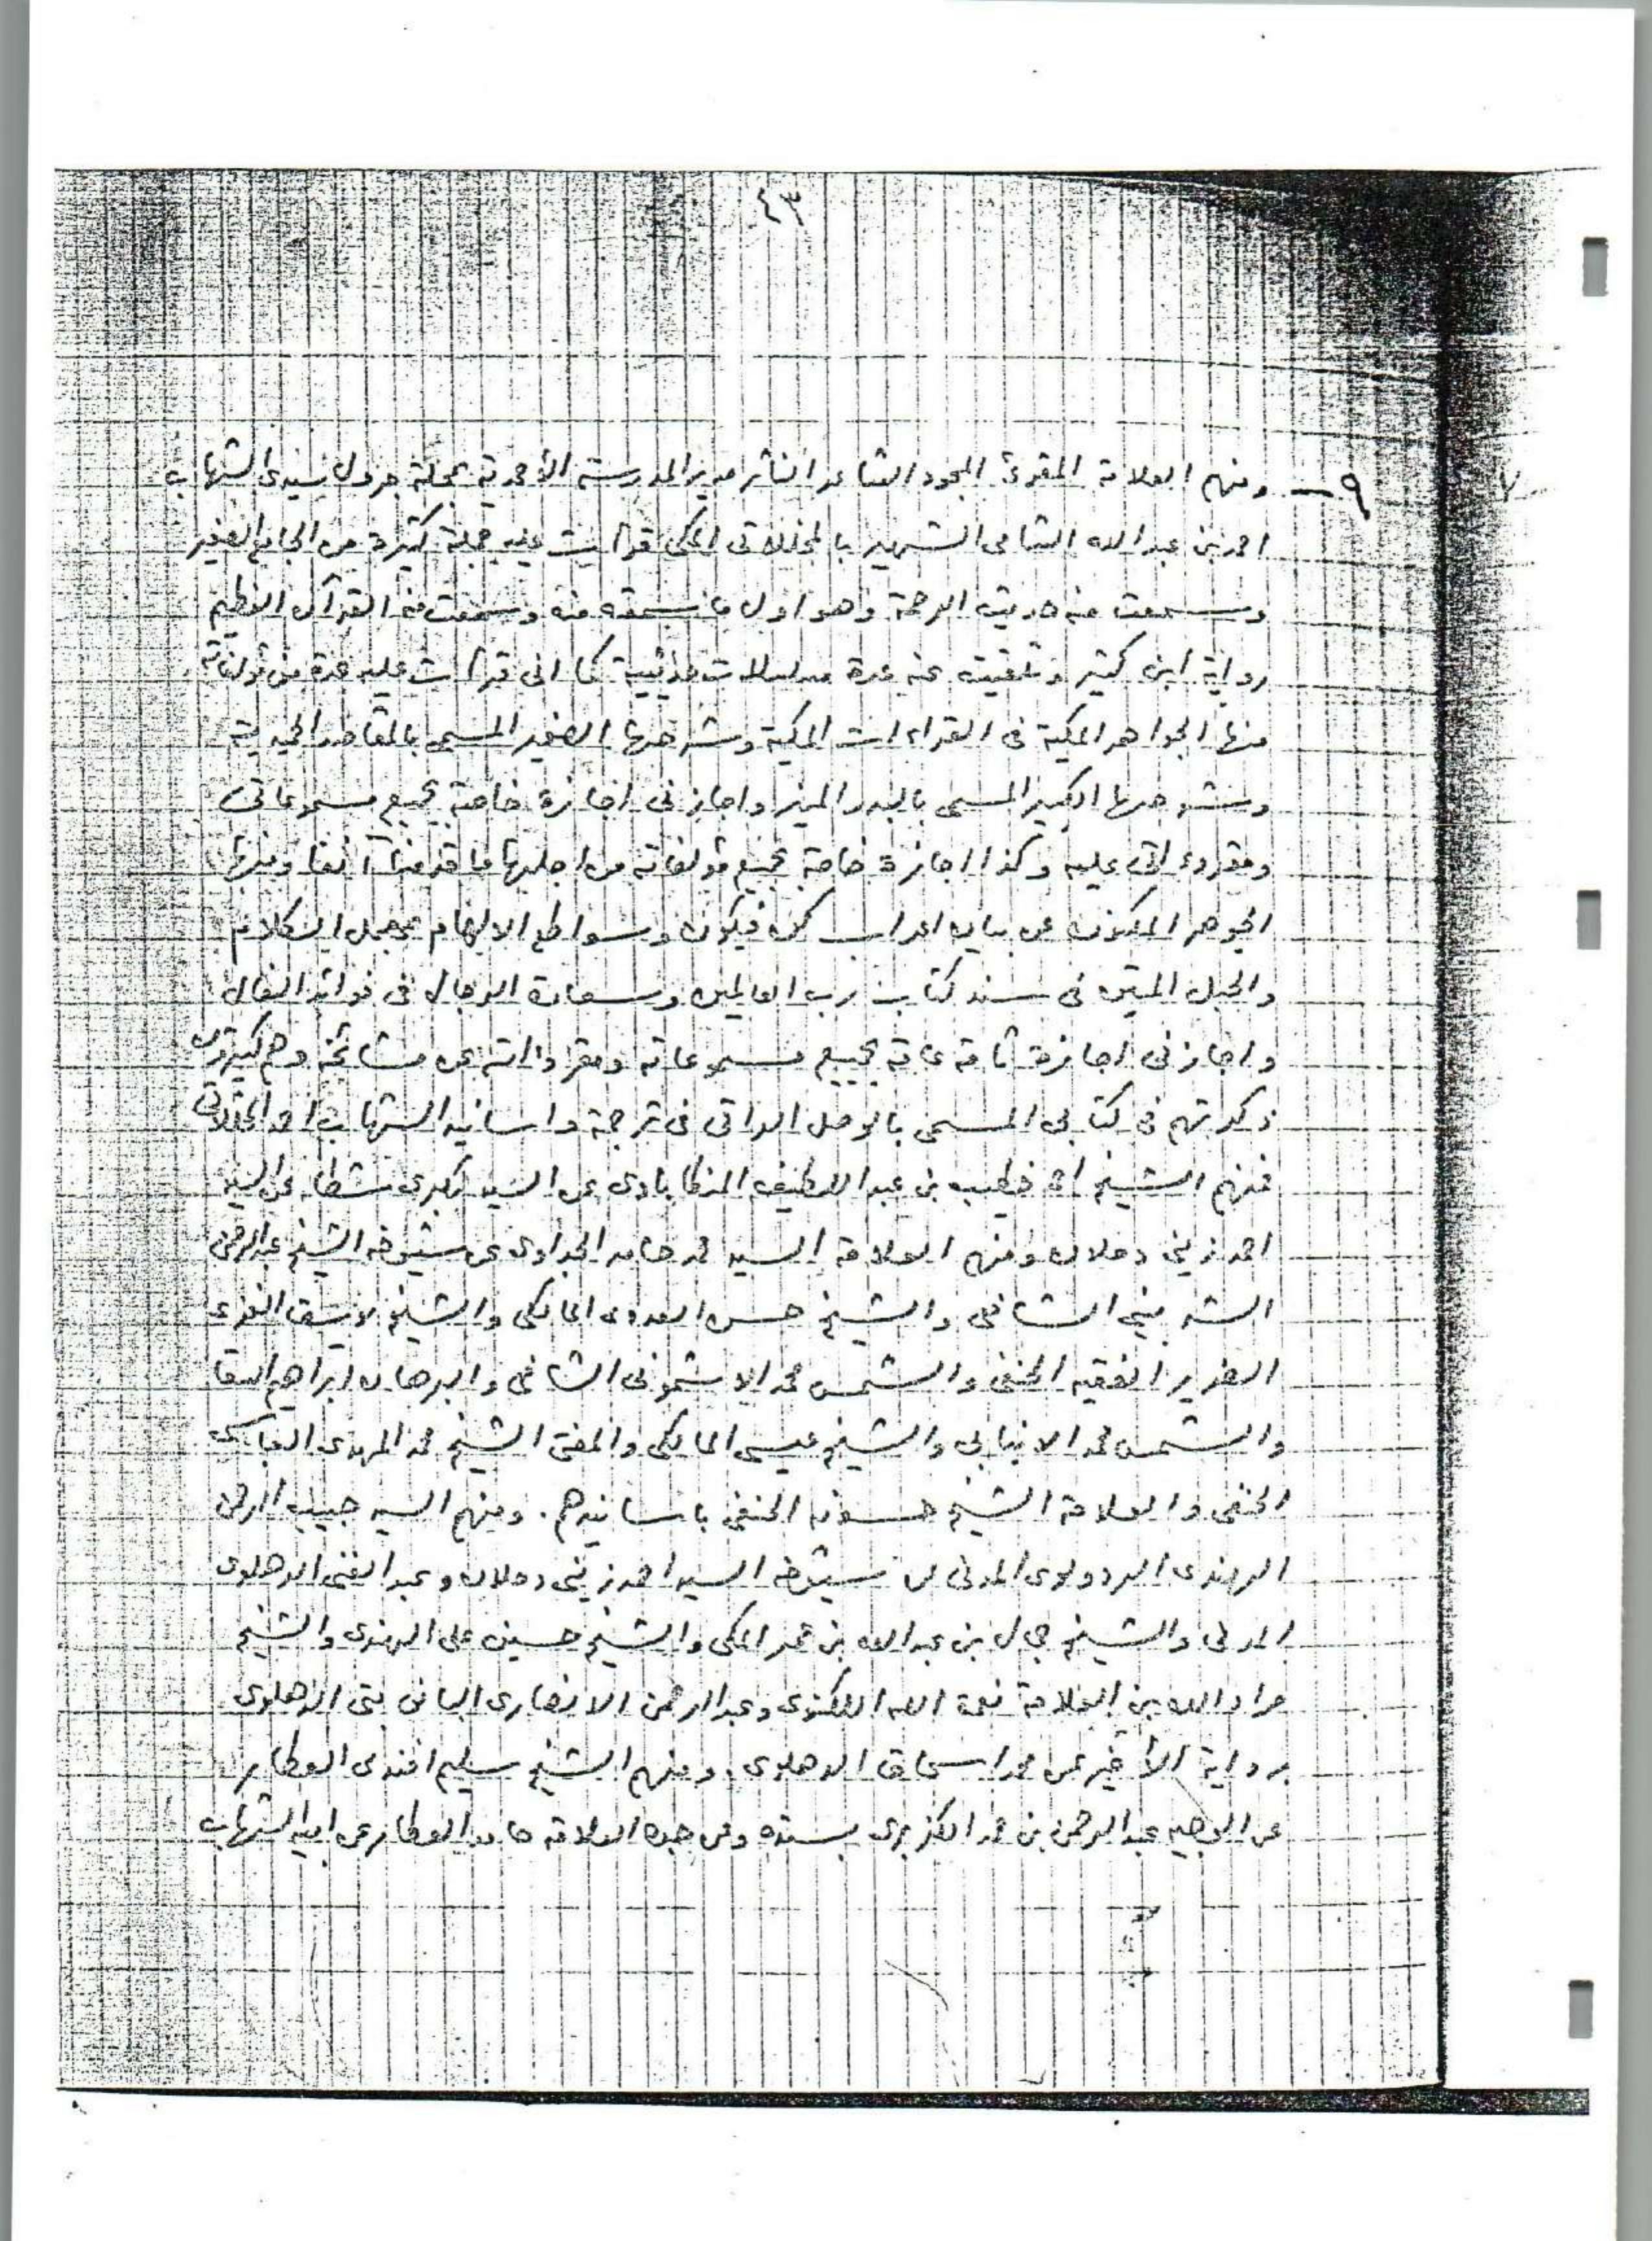 ٤٣
٩ — ومنهم العلامة المقرئ المجود الشاعر الناثر مدير المدرسة الأحمدية بمحلة جرول سيدي الشهاب
احمد بن عبد الله الشامى الشهير بالمخللاتى المكى قرأت عليه جملة كثيرة من الجامع الصغير
وسمعت منه حديث الرحمة وهو اول ما سمعته منه وسمعت منه القرآن العظيم
رواية ابن كثير وتلقيت عنه عدة مسلسلات حديثية كما انى قرأت عليه عدة من مؤلفاته
منها الجواهر المكية فى القراءات المكية وشرحها الصغير المسمى بالمقاصد
وشرحها الكبير المسمى بالبدر المنير واجازنى اجازة خاصة بجميع مسموعاتى
ومقروءاتى عليه وكذا اجازة خاصة بجميع مؤلفاته من اجلها ما قدمنا آنفا ومنها
الجوهر المكنون عن بيان اعراب كن فيكون وسواطع الالهام بمجمل الكلام
والحبل المتين فى سند كتاب رب العالمين وسعادة الرجال فى فوائد النعال
واجازنى اجازة تامة عامة بجميع مسموعاته ومقروءاته عن مشائخه وهم كثيرون
ذكرتهم فى كتابى المسمى بالوصل الراتى فى ترجمة واسانيد الشهاب احمد المخللاتى
فمنهم الشيخ احمد خطيب بن عبد اللطيف المنكاباوى عن السيد بكرى شطا عن السيد
احمد زينى دحلان ومنهم العلامة السيد محمد حامد الجداوى عن شيوخه الشيخ عبد الرحمن
الشربينى الشافعى والشيخ حسن العدوى المالكى والشيخ يوسف الغزى
الضرير الفقيه الحنفى والشمس محمد الاشمونى الشافعى والبرهان ابراهيم السقا
والشمس محمد الانبابى والشيخ عيسى المالكى والمفتى الشيخ محمد المهدى العباسى
الحنفى والعلامة الشيخ حسونه الحنفى باسانيدهم. ومنهم السيد حبيب الرحمن
الهندى الردولوى المدنى عن شيوخه السيد احمد زينى دحلان وعبد الغنى الدهلوى
المدنى والشيخ جمال بن عبد الله بن عمر المكى والشيخ حسين على الهندى والشيخ
مراد الله بن العلامة نعمة الله اللكنوى وعبد الرحمن الانصارى البانى بتى الدهلوى
برواية الأخير عن محمد اسحاق الدهلوى. ومنهم الشيخ سليم افندى العطار
عن الوجيه عبد الرحمن بن محمد الكزبرى بسنده وعن جده العلامة حامد العطار عن ابيه الشهاب